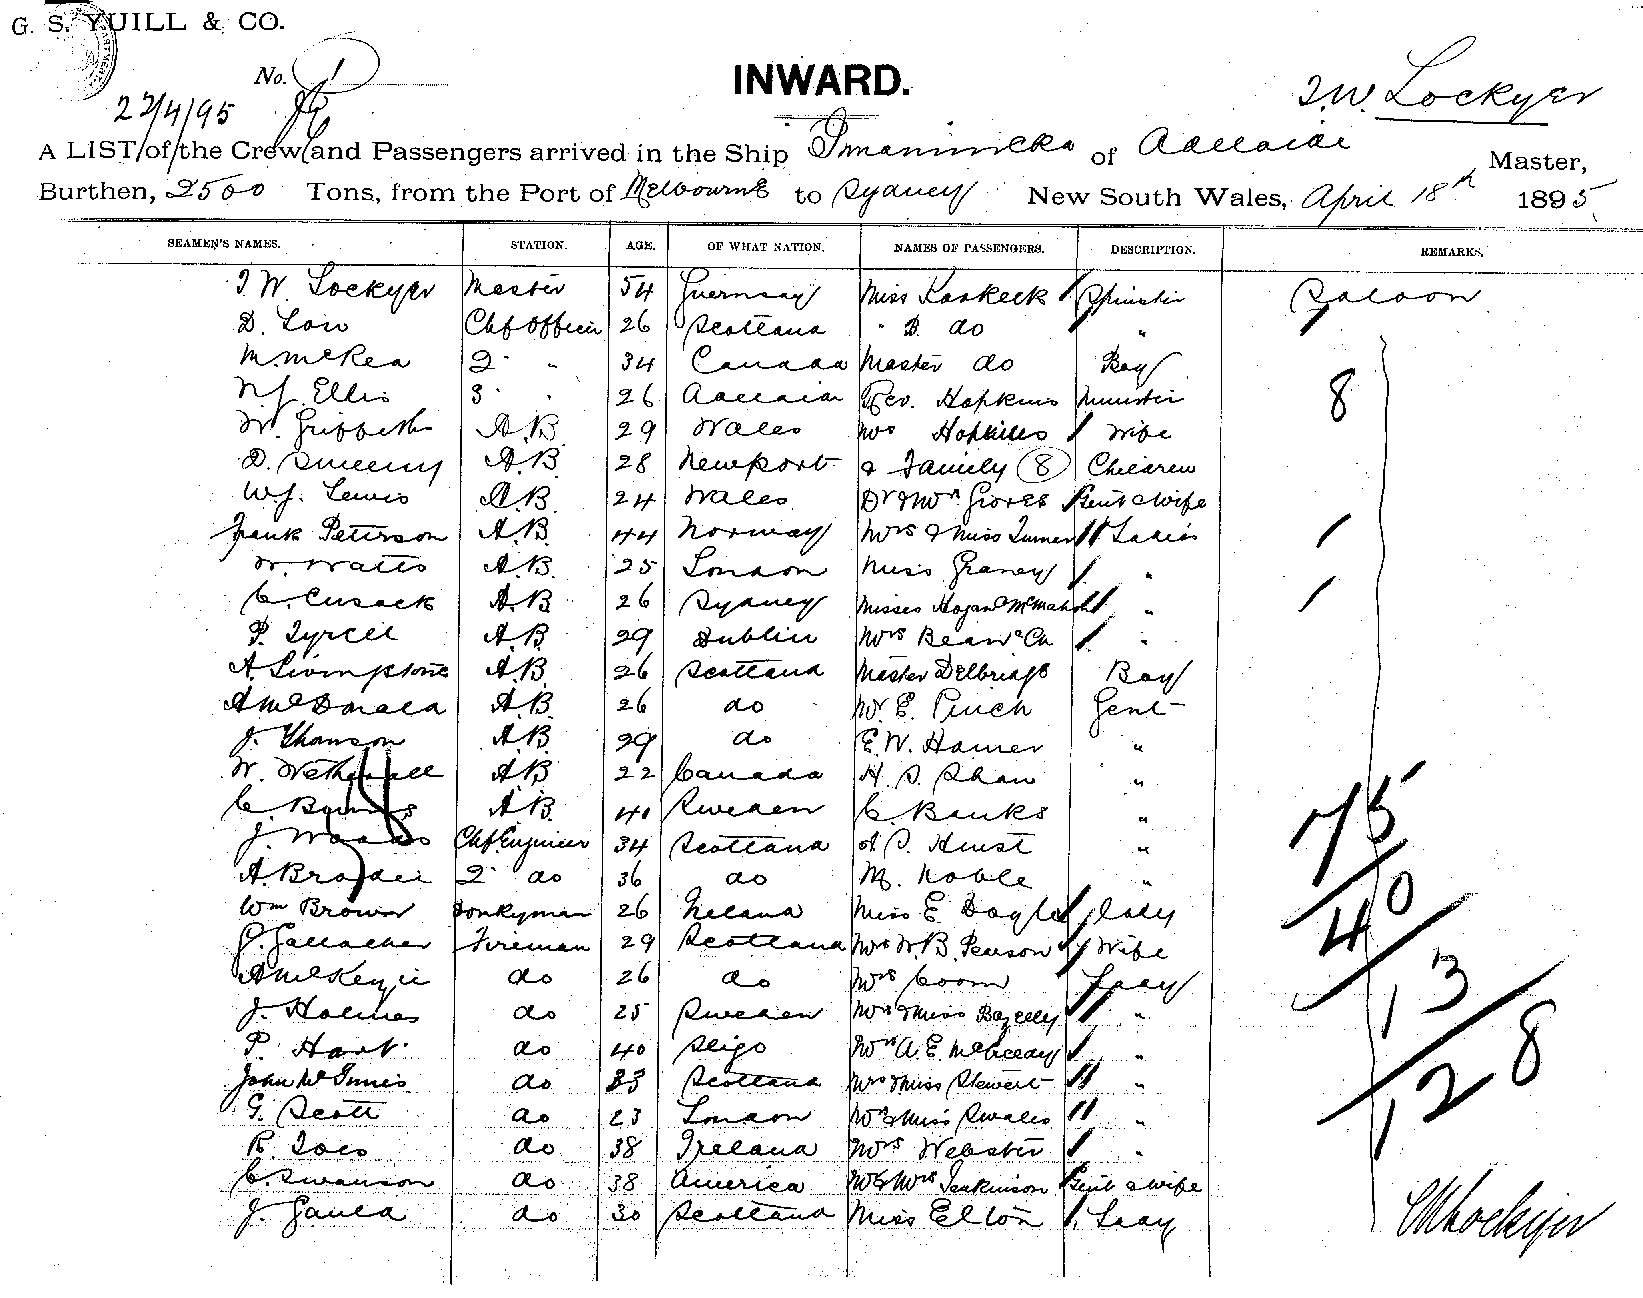 G. S. YUILL & CO.
No. 1
INWARD.
J.W. Lockyer
22/4/95
A LIST of the Crew and Passengers arrived in the Ship Innamincka of Adelaide Master,
Burthen, 2500 Tons, from the Port of Melbourne to Sydney New South Wales, April 18th 1895
SEAMEN'S NAMES. STATION. AGE. OF WHAT NATION. NAMES OF PASSENGERS. DESCRIPTION. REMARKS.
J W Lockyer Master 54 Guernsey Miss Roskeck Spinster Saloon
D. Low Chf Officer 26 Scotland " B do "
M. McRea 2 " 34 Canada Master do Boy
N J. Ellis 3 " 26 Adelaide Rev. Hopkins Minister 8
W. Griffith A.B. 29 Wales Mrs Hopkins Wife
D. Sweeney A.B. 28 Newport & Family 8 Children
W J. Lewis A.B. 24 Wales Dr & Mrs Groves Gent & Wife
Frank Peterson A.B. 44 Norway Mrs & Miss Turner Ladies
W. Watts A.B. 25 London Miss Graney "
C. Cusack A.B. 26 Sydney Misses Hogan & McMahon "
P. Tyrell A.B. 29 Dublin Mrs Bean & Ch "
A. Livingstone A.B. 26 Scotland Master Delbridge Boy
A McDonald A.B. 26 do Mr. E. Pinch Gent
J. A.B. 29 do E. W. Hamer "
W. Wetherall A.B. 22 Canada H. S. Shaw "
C. A.B. 40 Sweden C. Banks "
J. Woods Chf. Engineer 34 Scotland A S. Hurst "
A. Brodie 2 do 36 do M. Noble "
Wm Brown Donkyman 26 Ireland Miss E Doyle Lady
J. Gallacher Fireman 29 Scotland Mrs W. B. Pearson Wife
A McKenzie do 26 do Mrs Coom Lady
J. Holmes do 25 Sweden Mrs & Miss Bazelly "
P. Hart do 40 Sligo Mrs A. E. "
John McInnis do 33 Scotland Mrs Miss Stewart "
G. Scott do 23 London Mrs & Miss Swales "
R. do 38 Ireland Mrs Webster "
C. Swanson do 38 America Mr & Mrs Jenkinson Gent & Wife
J. Gauld do 30 Scotland Miss Elton Lady
75
40
13
128
J W Lockyer